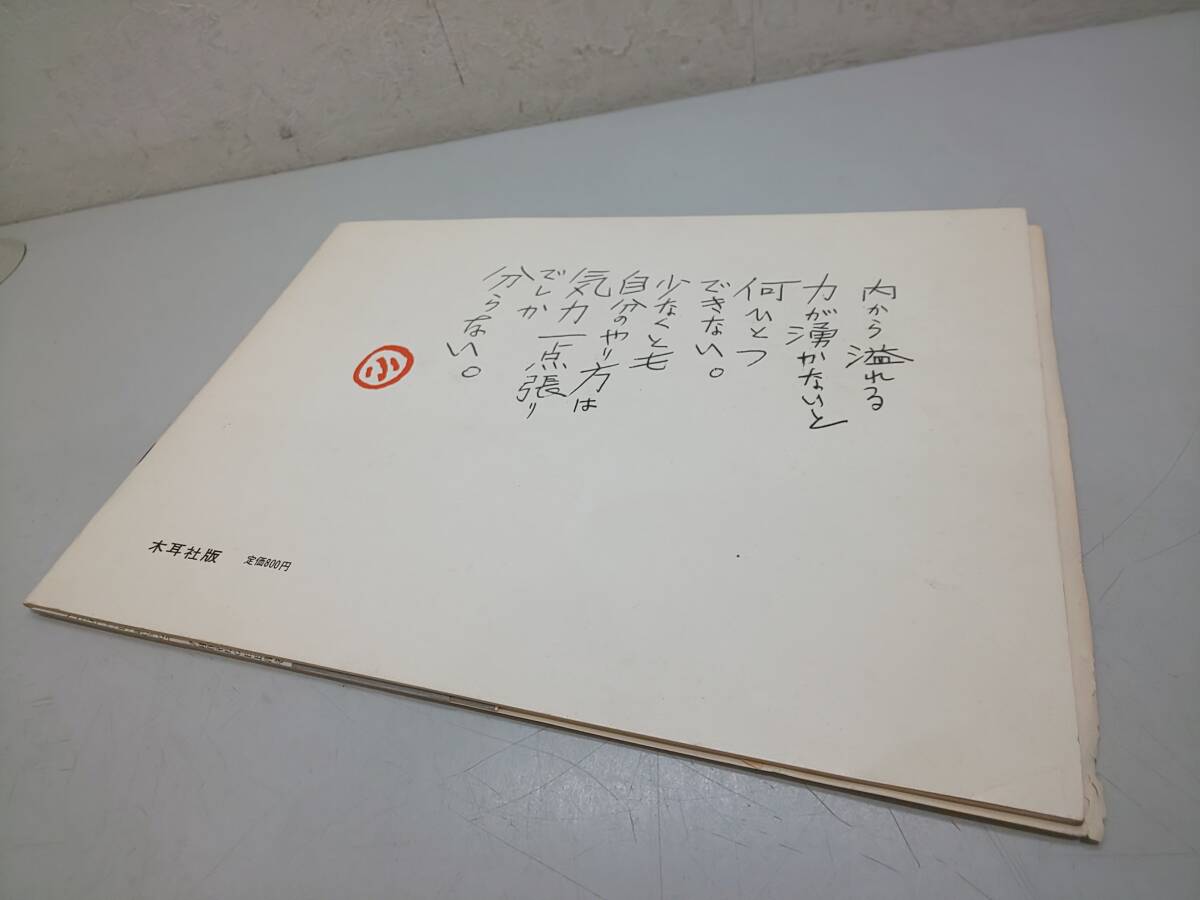 内から溢れる
力が湧かないと
何ひとつ
できない。
少なくとも
自分のやり方は
気力一点張り
でしか
分らない。
小
木耳社版 定価800円